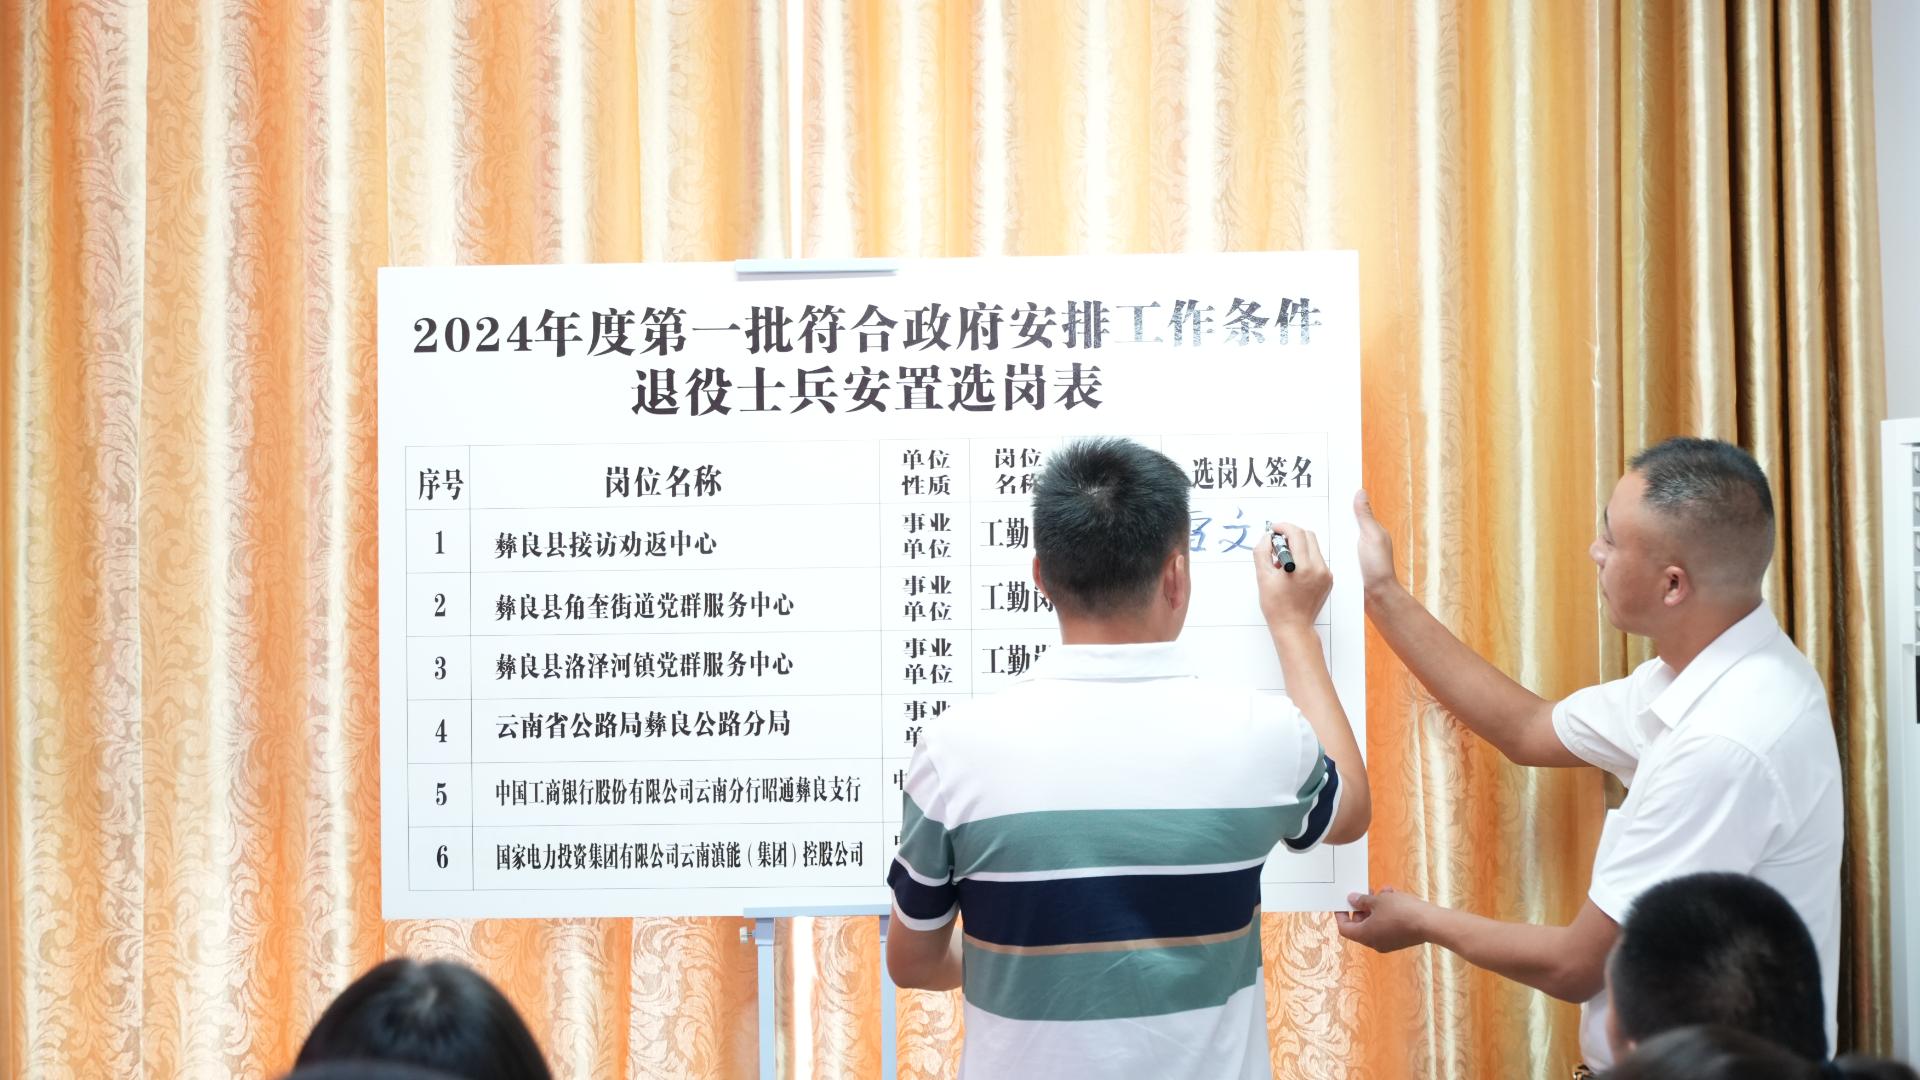 2024年度第一批符合政府安排工作条件
退役士兵安置选岗表
序号 岗位名称 单位性质 岗位名称 选岗人签名
1 彝良县接访劝返中心 事业单位 工勤
2 彝良县角奎街道党群服务中心 事业单位 工勤岗
3 彝良县洛泽河镇党群服务中心 事业单位 工勤岗
4 云南省公路局彝良公路分局 事业单
5 中国工商银行股份有限公司云南分行昭通彝良支行 中
6 国家电力投资集团有限公司云南滇能（集团）控股公司